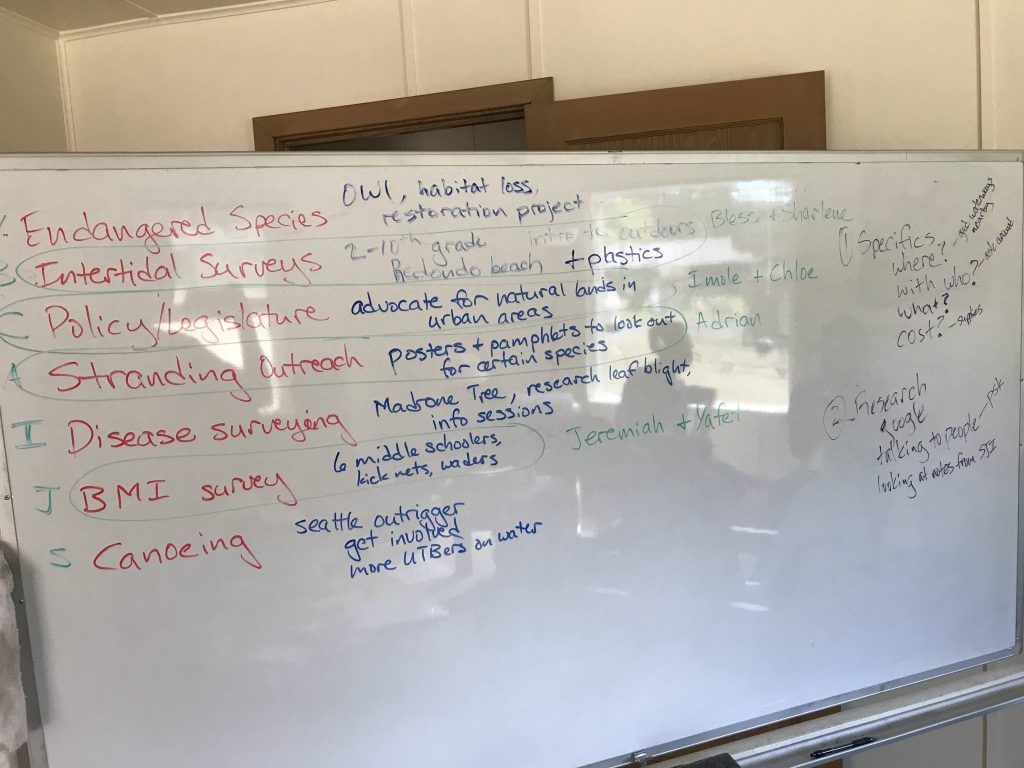 Y. Endangered Species
OWl, habitat loss,
restoration project
B Intertidal Surveys
2-10th grade intro to outdoors
Redondo beach + plastics
Bless + Sharlene
C Policy/Legislature
advocate for natural lands in
urban areas
Imole + Chloe
A Stranding Outreach
posters + pamphlets to look out
for certain species
Adrian
I Disease surveying
Madrone Tree, research leaf blight,
info sessions
J BMI survey
6 middle schoolers,
kick nets, waders
Jeremiah & Yafet
S Canoeing
seattle outrigger
get involved
more UTBers on water
1 Specifics
where? - find waterways
nearby
with who? - ask around
what?
cost? - supplies
2 - Research
google
talking to people - pick
looking at notes from SJI